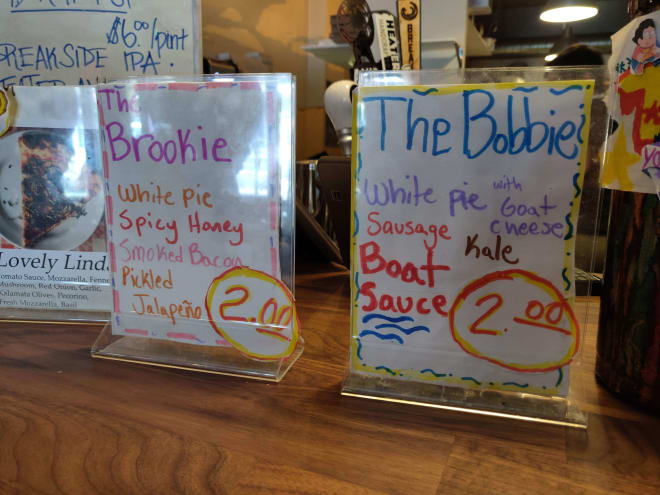 $6.00/pint
BREAKSIDE IPA
Lovely Linda
Tomato Sauce, Mozzarella, Fennel
Mushroom, Red Onion, Garlic,
Kalamata Olives, Pecorino,
Fresh Mozzarella, Basil
The
Brookie
White Pie
Spicy Honey
Smoked Bacon
Pickled
Jalapeño
2.00
The Bobbie
White pie with Goat
cheese
Sausage
Kale
Boat
Sauce
2.00
HEATER